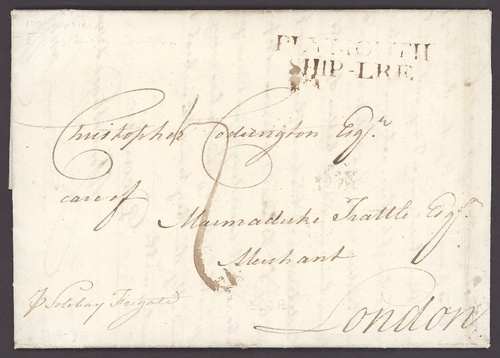 PLYMOUTH
SHIP-LRE
Christopher Codrington Esqr.
care of
Marmaduke Trattle Esqr.
Merchant
London
p Solebay Frigate